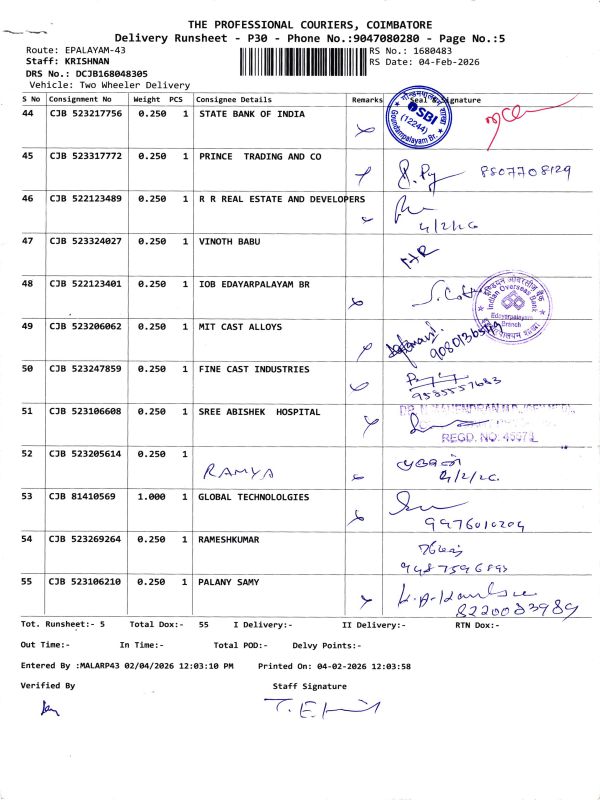 THE PROFESSIONAL COURIERS, COIMBATORE
Delivery Runsheet - P30 - Phone No.:9047080280 - Page No.:5
Route: EPALAYAM-43
RS No.: 1680483
Staff: KRISHNAN
RS Date: 04-Feb-2026
DRS No.: DCJB168048305
Vehicle: Two Wheeler Delivery
S No Consignment No Weight PCS Consignee Details Remarks Seal Signature
44 CJB 523217756 0.250 1 STATE BANK OF INDIA
SBI
(12244)
Goundampalayam Br.
45 CJB 523317772 0.250 1 PRINCE TRADING AND CO
8807708129
46 CJB 522123489 0.250 1 R R REAL ESTATE AND DEVELOPERS
4/2/26
47 CJB 523324027 0.250 1 VINOTH BABU
48 CJB 522123401 0.250 1 IOB EDAYARPALAYAM BR
इण्डियन ओवरसीज़ बैंक
Indian Overseas Bank
Edayarpalayam
Branch
49 CJB 523206062 0.250 1 MIT CAST ALLOYS
50 CJB 523247859 0.250 1 FINE CAST INDUSTRIES
9585557683
51 CJB 523106608 0.250 1 SREE ABISHEK HOSPITAL
REGD. NO.
52 CJB 523205614 0.250 1
RAMYA
4/2/26
53 CJB 81410569 1.000 1 GLOBAL TECHNOLOLGIES
9976010204
54 CJB 523269264 0.250 1 RAMESHKUMAR
55 CJB 523106210 0.250 1 PALANY SAMY
8220083989
Tot. Runsheet:- 5 Total Dox:- 55 I Delivery:- II Delivery:- RTN Dox:-
Out Time:- In Time:- Total POD:- Delvy Points:-
Entered By :MALARP43 02/04/2026 12:03:10 PM Printed On: 04-02-2026 12:03:58
Verified By Staff Signature